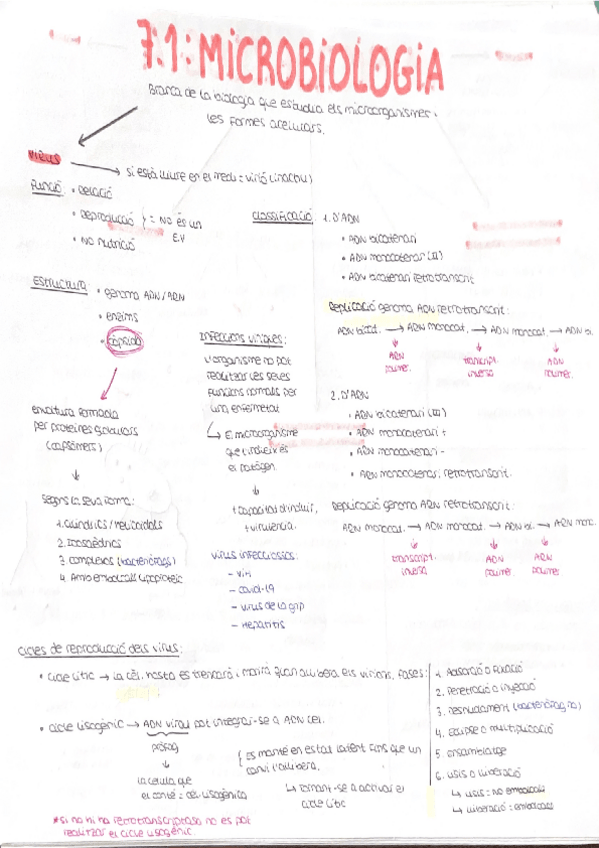 7.1: MICROBIOLOGIA
Branca de la biologia que estudia els microorganismes i
les formes acel·lulars.
VIRUS
→ si està lliure en el medi = virió (inactiu)
FUNCIÓ
• Relació
• Reproducció } = NO és un
E.V
• No nutrició
CLASSIFICACIÓ
1. D'ADN
• ADN bicatenari
• ADN monocatenari (II)
• ADN bicatenari retrotranscrit
Replicació genoma ADN retrotranscrit:
ADN bicat. → ARN monocat. → ADN monocat. → ADN bi.
↓ ARN polimer.
↓ transcript. inversa
↓ ADN polimer.
2. D'ARN
• ARN bicatenari (III)
• ARN monocatenari +
• ARN monocatenari -
• ARN monocatenari, retrotranscrit.
Replicació genoma ARN retrotranscrit:
ARN monocat. → ADN monocat. → ADN bi. → ARN monoc.
↓ transcript. inversa
↓ ADN polimer.
↓ ARN polimer.
ESTRUCTURA
• genoma ADN/ARN
• enzims
• càpsida
envoltura formada
per proteïnes globulars
(capsòmers)
↓
Segons la seva forma:
1. Cilíndrics / helicoidals
2. Icosaèdrics
3. complexos (bacteriòfags)
4. Amb embolcall lipoproteic
INFECCIONS VÍRIQUES:
L'organisme no pot
realitzar les seves
funcions normals per
una enfermetat
↳ El microorganisme
que t'indueix és
el patògen.
↓
+ capacitat d'induir,
+ virulència.
VIRUS INFECCIOSOS:
- VIH
- covid-19
- virus de la grip
- Hepatitis
CICLES DE REPRODUCCIÓ DELS VIRUS:
• Cicle lític → la cèl. hosta es trencarà i morirà quan allibera els virions. Fases:
1. Adsorció o fixació
2. Penetració o injecció
3. Despullament (bacteriòfag no)
4. Eclipse o multiplicació
5. ensamblatge
6. Lisis o lliberació
↳ Lisis = no embolcall
↳ lliberació = embolcall
• Cicle lisogènic → ADN viral pot integrar-se a ADN cel.
pròfag
↓
la cèl·lula que
el conté = cèl. lisogènica
{ es manté en estat latent fins que un
canvi l'allibera.
↳ tornant-se a activar el
cicle lític
*si no hi ha retrotranscriptasa no es pot
realitzar el cicle lisogènic.